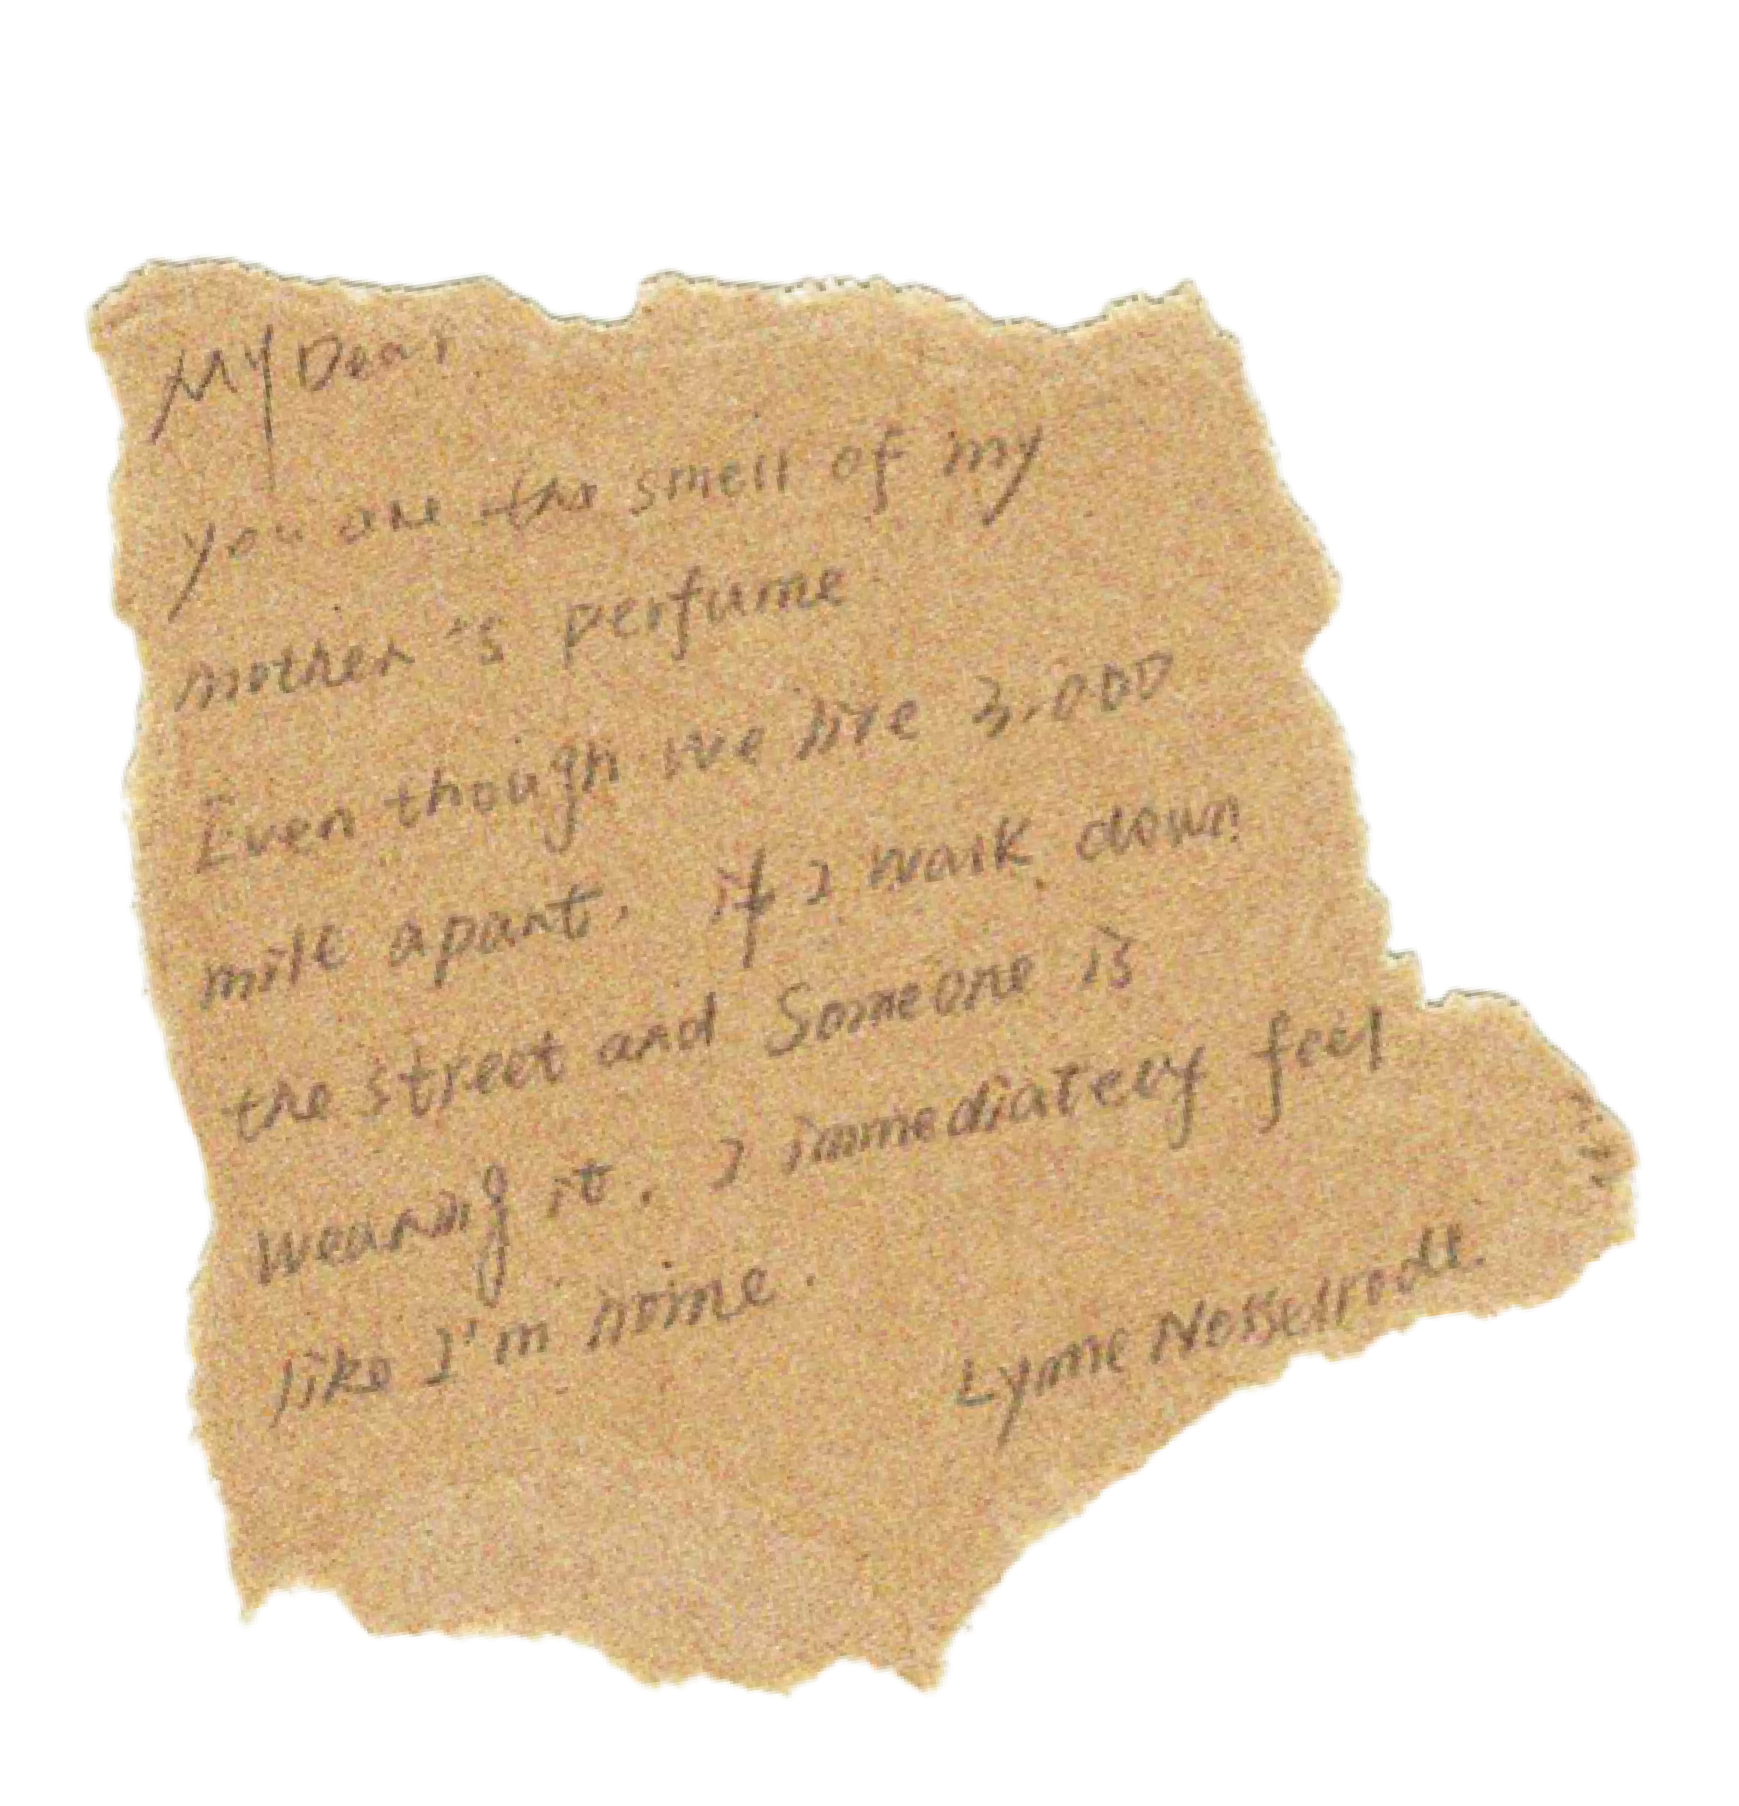 My Dear
you are the smell of my
mother's perfume
Even though we live 3.000
mile apart. if I walk down
the street and Someone is
wearing it. I immediately feel
like I'm home.
Lynne Nesselrode.